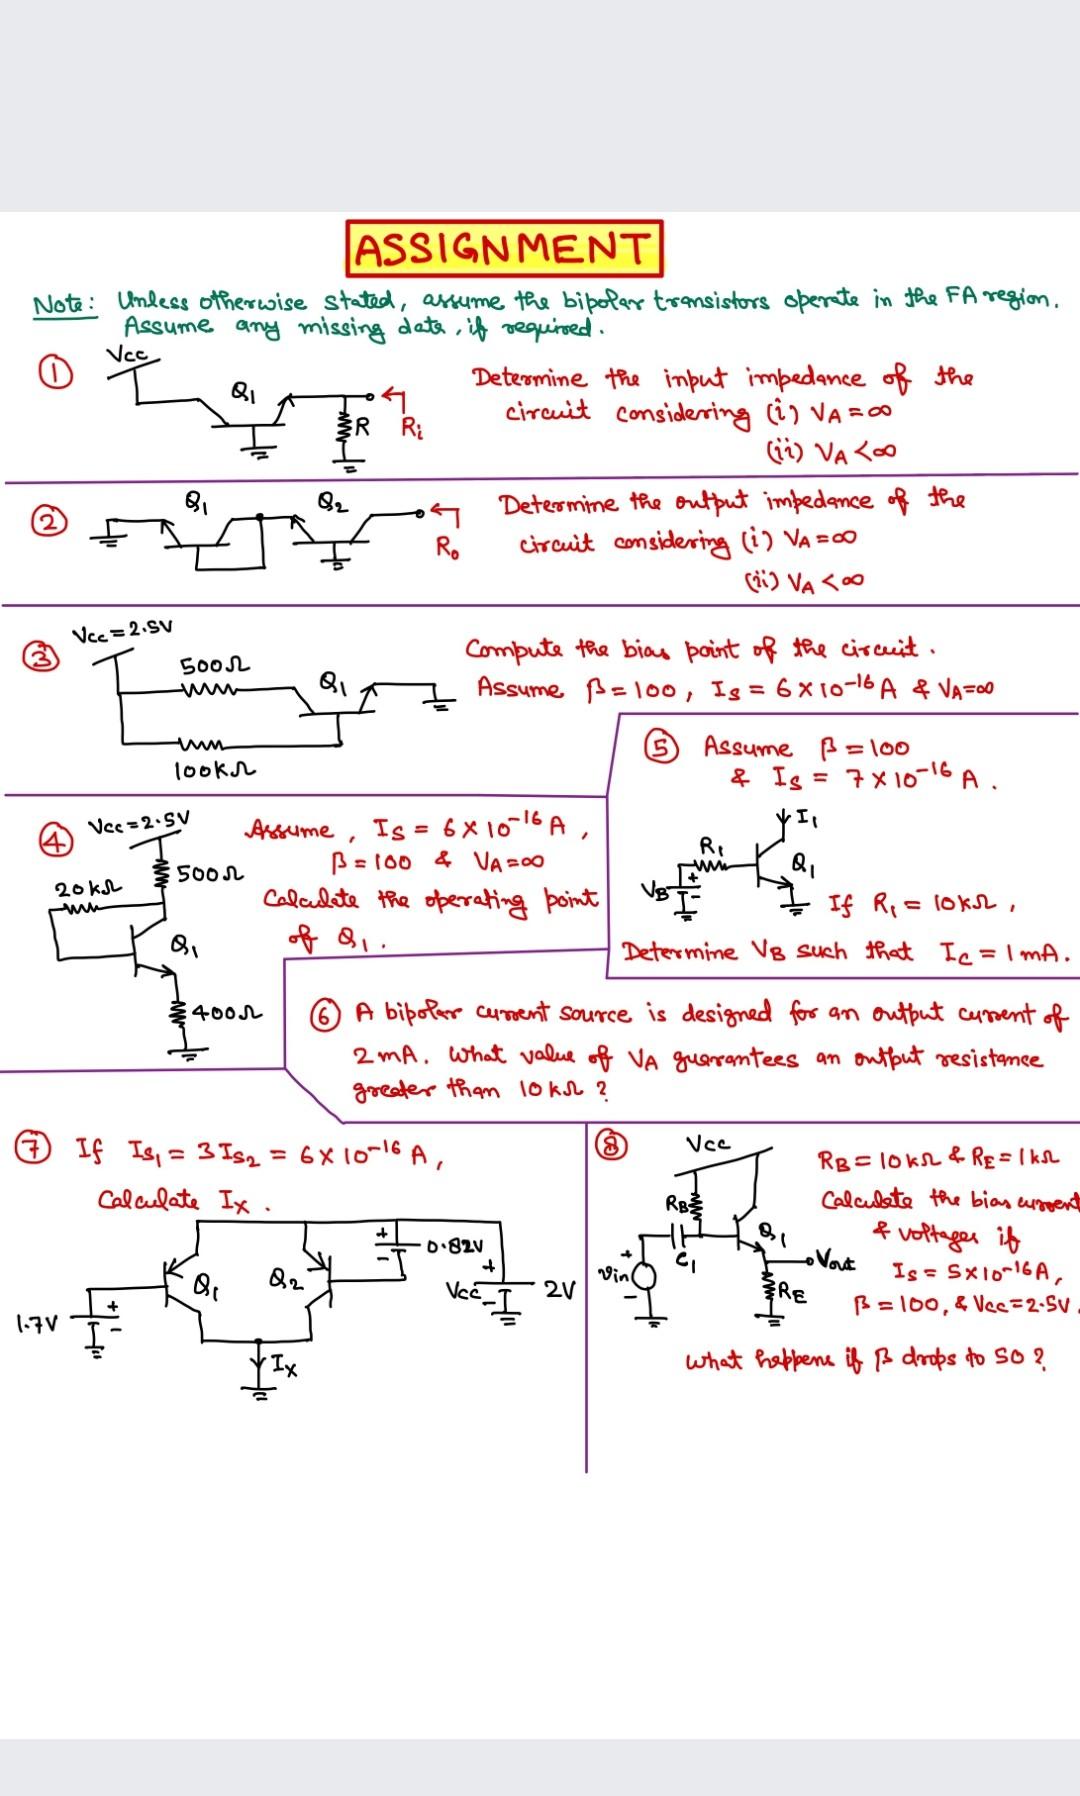 ASSIGNMENT
Note: Unless otherwise stated, assume the bipolar transistors operate in the FA region.
Assume any missing data, if required.
① Vcc
Q1
R
Ri
Determine the input impedance of the
circuit considering (i) VA = ∞
(ii) VA < ∞
② Q1 Q2
Ro
Determine the output impedance of the
circuit considering (i) VA = ∞
(ii) VA < ∞
③ Vcc = 2.5V
500Ω
Q1
100KΩ
Compute the bias point of the circuit.
Assume β = 100, Is = 6 × 10⁻¹⁶ A & VA = ∞
④ Vcc = 2.5V
500Ω
20kΩ
Q1
400Ω
Assume, Is = 6 × 10⁻¹⁶ A,
β = 100 & VA = ∞
Calculate the operating point
of Q1.
⑤ Assume β = 100
& Is = 7 × 10⁻¹⁶ A.
I1
R1
Q1
VB
+
-
If R1 = 10KΩ,
Determine VB such that Ic = 1 mA.
⑥ A bipolar current source is designed for an output current of
2 mA. What value of VA guarantees an output resistance
greater than 10 KΩ?
⑦ If Is1 = 3 Is2 = 6 × 10⁻¹⁶ A,
Calculate Ix.
+
-
0.82V
Q1
Q2
+
Vcc
-
2V
1.7V
+
-
Ix
⑧ Vcc
RB
Q1
C1
+
vin
-
Vout
RE
RB = 10 KΩ & RE = 1 kΩ
Calculate the bias current
& voltages if
Is = 5 × 10⁻¹⁶ A,
β = 100, & Vcc = 2.5V.
What happens if β drops to 50?